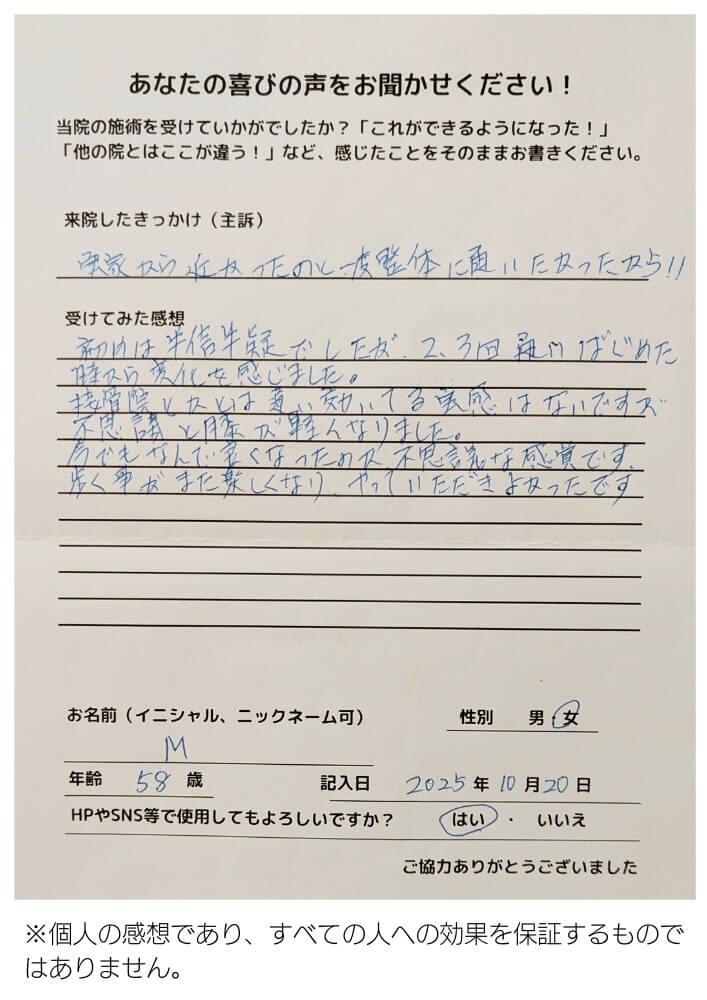 あなたの喜びの声をお聞かせください！
当院の施術を受けていかがでしたか？「これができるようになった！」
「他の院とはここが違う！」など、感じたことをそのままお書きください。
来院したきっかけ（主訴）
実家から近かったのと一度整体に通いたかったから!!
受けてみた感想
初めは半信半疑でしたが、2、3回通いはじめた
時から変化を感じました。
接骨院とかとは違い効いてる実感はないですが
不思議と膝が軽くなりました。
今でもなんで良くなったのか不思議な感覚です。
歩く事がまた楽しくなり、やっていただきよかったです
お名前（イニシャル、ニックネーム可）
性別 男・女
M
年齢 58 歳
記入日 2025 年 10 月 20 日
HPやSNS等で使用してもよろしいですか？ はい ・ いいえ
ご協力ありがとうございました
※個人の感想であり、すべての人への効果を保証するもので
はありません。